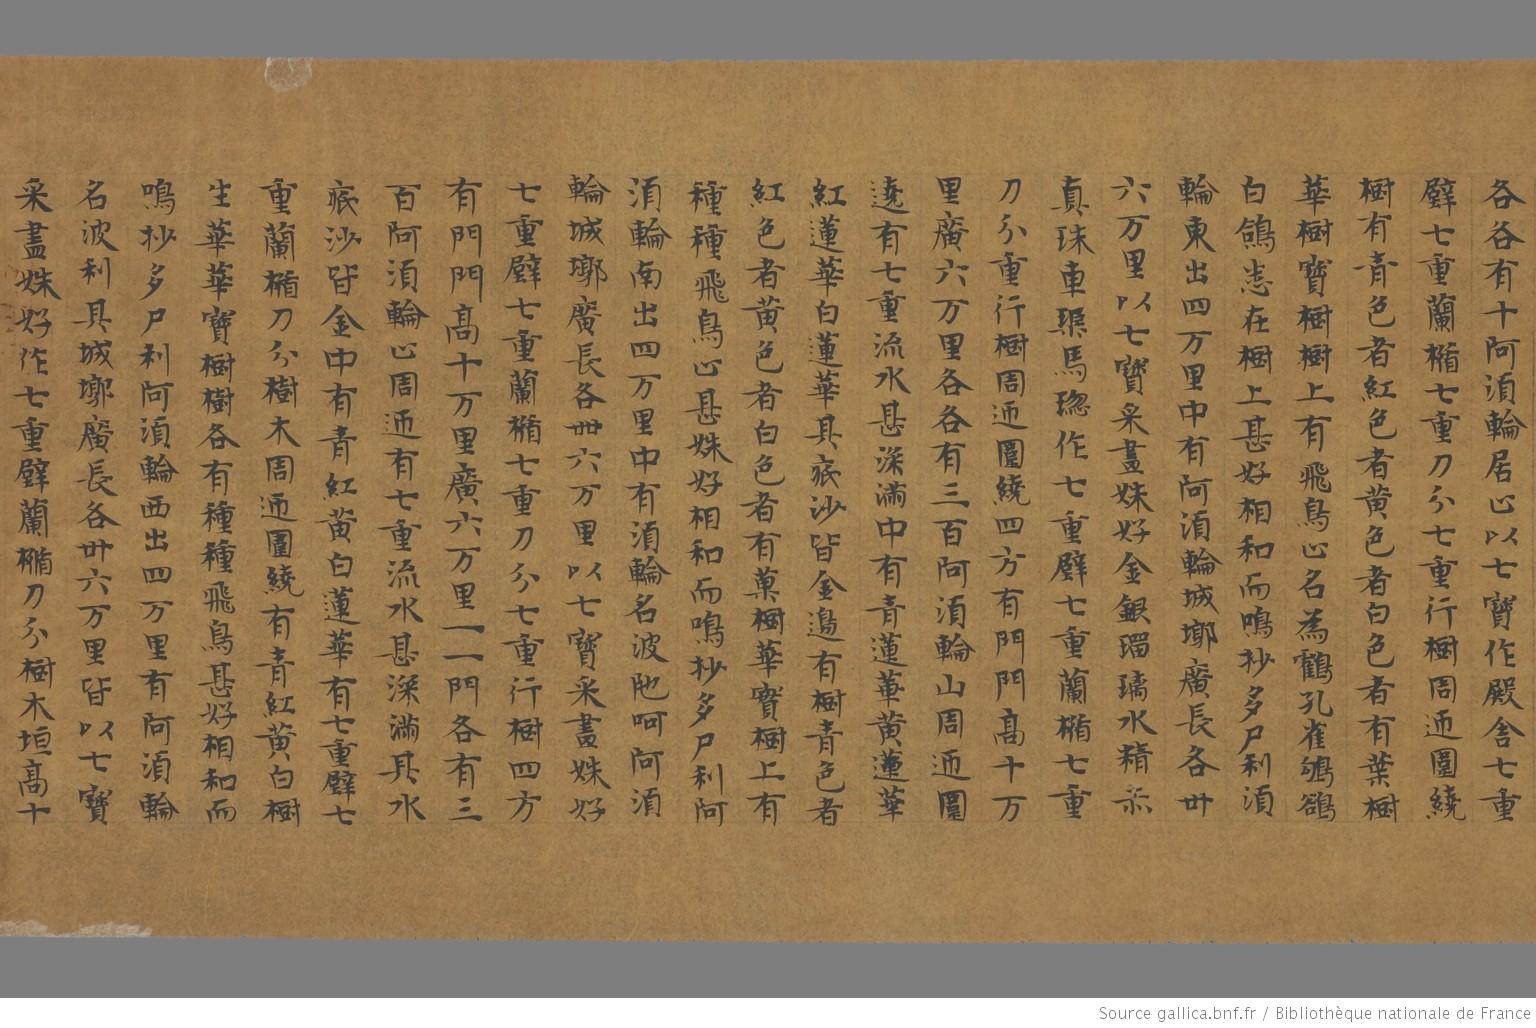 各各有十阿湏輪居心以七寶作殿舍七重
壁七重蘭楯七重刀分七重行樹周迊圍繞
樹有青色者紅色者黃色者白色者有葉樹
華樹寶樹樹上有飛鳥心名為鶴孔雀鴝鵒
白鴿悉在樹上甚好相和而鳴抄多尸利湏
輪東出四万里中有阿湏輪城墎廣長各卅
六万里以七寶采畫姝好金銀瑠璃水精赤
真珠車璖馬瑙作七重壁七重蘭楯七重
刀分重行樹周迊圍繞四方有門門高十万
里廣六万里各各有三百阿湏輪山周迊圍
遶有七重流水甚深滿中有青蓮華黃蓮華
紅蓮華白蓮華其底沙皆金邊有樹青色者
紅色者黃色者白色者有菓樹華寶樹上有
種種飛鳥心甚姝好相和而鳴抄多尸利阿
湏輪南出四万里中有湏輪名波陁呵阿湏
輪城墎廣長各卌六万里以七寶采畫姝好
七重壁七重蘭楯七重刀分七重行樹四方
有門門高十万里廣六万里一一門各有三
百阿湏輪心周迊有七重流水甚深滿其水
底沙皆金中有青紅黃白蓮華有七重壁七
重蘭楯刀分樹木周迊圍繞有青紅黃白樹
生華華寶樹樹各有種種飛鳥甚好相和而
鳴抄多尸利阿湏輪西出四万里有阿湏輪
名波利具城墎廣長各卅六万里皆以七寶
采畫姝好作七重壁蘭楯刀分樹木垣高十
Source gallica.bnf.fr / Bibliothèque nationale de France